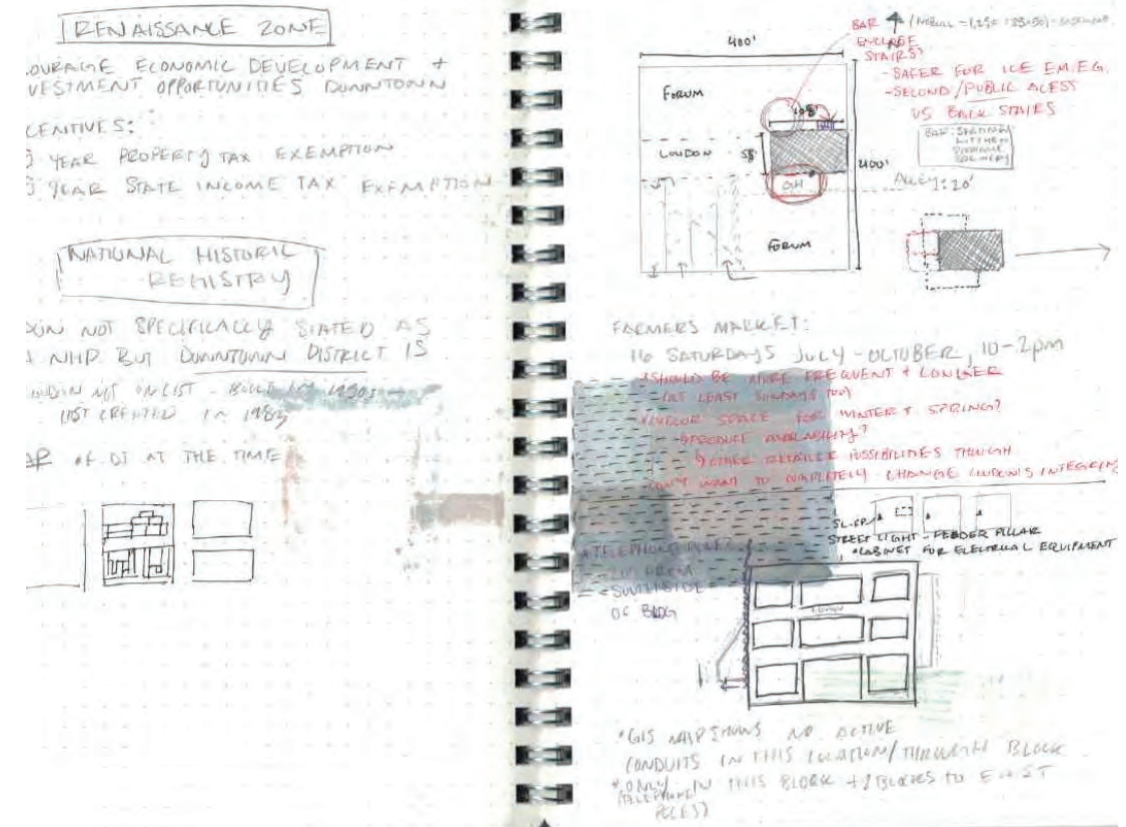 RENAISSANCE ZONE
OURAGE ECONOMIC DEVELOPMENT +
VESTMENT OPPORTUNITIES DOWNTOWN
CENTIVES:
YEAR PROPERTY TAX EXEMPTION
YEAR STATE INCOME TAX EXEMPTION
NATIONAL HISTORIC
REGISTRY
DON NOT SPECIFICALLY STATED AS
A NHP BUT DOWNTOWN DISTRICT IS
NOT ON LIST - BUILT
LIST CREATED IN 1983
OF DT AT THE TIME
400'
FORUM
108'
LOUDON 58'
400'
GH
FORUM
BAR
ENCLOSE
STAIRS?
- SAFER FOR ICE EM. EG.
- SECOND/PUBLIC ACESS
VS BACK STAIRS
BAR: SEATING
KITCHEN
STORAGE
BREWERY
ALLEY: 20'
FARMERS MARKET:
16 SATURDAYS JULY - OCTOBER, 10-2pm
*SHOULD BE MORE FREQUENT + LONGER
(AT LEAST SUNDAYS TOO)
SPACE FOR WINTER + SPRING?
PRODUCE AVAILABILITY?
OTHER RETAILER POSSIBILITIES THOUGH
DON'T WANT TO COMPLETELY CHANGE LOUDON'S INTEGRITY
SL-FP
STREET LIGHT - FEEDER PILLAR
*CABINET FOR ELECTRICAL EQUIPMENT
*TELEPHONE
FROM
SOUTHSIDE
OF BLDG
LOUDON
*GIS MAP SHOWS NO ACTIVE
CONDUITS IN THIS LOCATION/THROUGH BLOCK
*ONLY IN THIS BLOCK + 2 BLOCKS TO EAST
(TELEPHONE
POLES)